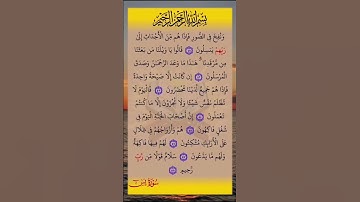 بسم الله الرحمن الرحيم
وَنُفِخَ فِي الصُّورِ فَإِذَا هُم مِّنَ الْأَجْدَاثِ إِلَىٰ
رَبِّهِمْ يَنسِلُونَ ۝ قَالُوا يَا وَيْلَنَا مَن بَعَثَنَا
مِن مَّرْقَدِنَا ۜ هَٰذَا مَا وَعَدَ الرَّحْمَٰنُ وَصَدَقَ
الْمُرْسَلُونَ ۝ إِن كَانَتْ إِلَّا صَيْحَةً وَاحِدَةً
فَإِذَا هُمْ جَمِيعٌ لَّدَيْنَا مُحْضَرُونَ ۝ فَالْيَوْمَ لَا
تُظْلَمُ نَفْسٌ شَيْئًا وَلَا تُجْزَوْنَ إِلَّا مَا كُنتُمْ
تَعْمَلُونَ ۝ إِنَّ أَصْحَابَ الْجَنَّةِ الْيَوْمَ فِي
شُغُلٍ فَاكِهُونَ ۝ هُمْ وَأَزْوَاجُهُمْ فِي ظِلَالٍ
عَلَى الْأَرَائِكِ مُتَّكِئُونَ ۝ لَهُمْ فِيهَا فَاكِهَةٌ
وَلَهُم مَّا يَدَّعُونَ ۝ سَلَامٌ قَوْلًا مِّن رَّبٍّ
رَّحِيمٍ ۝
سورة يس